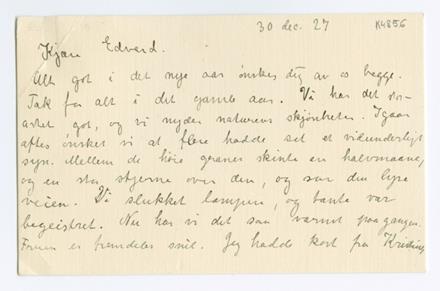 30 dec. 27
K4856
Kjære Edvard.
Alt got i det nye aar ønskes dig av os begge.
Tak for alt i det gamle aar. Vi har det stor-
artet got, og vi nyder naturens skjønheter. Igaar
aftes ønsket vi at flere hadde set et vidunderligt
syn. Mellem de høie graner skinte en halvmaane,
og en stor stjerne over den, og saa den lyse
veien. Vi slukket lampen, og tante var
begeistret. Nu har vi det saa varmt paa gangen.
Fruen er fremdeles snil. Jeg hadde kort fra